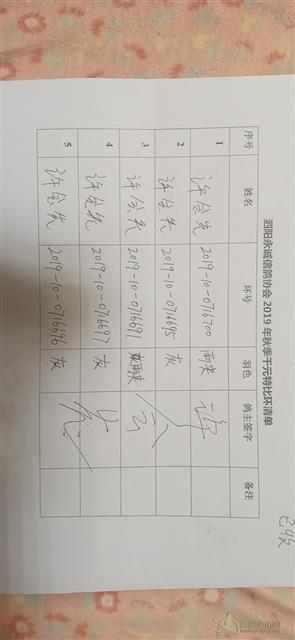 已收
泗阳永诚信鸽协会2019年秋季千元特比环清单
序号 姓名 环号 羽色 鸽主签字 备注
1 许会先 2019-10-0716700 雨夹 许
2 许会先 2019-10-0716695 灰 会
3 许会先 2019-10-0716691 雨夹
4 许会先 2019-10-0716697 灰 先
5 许会先 2019-10-0716696 灰